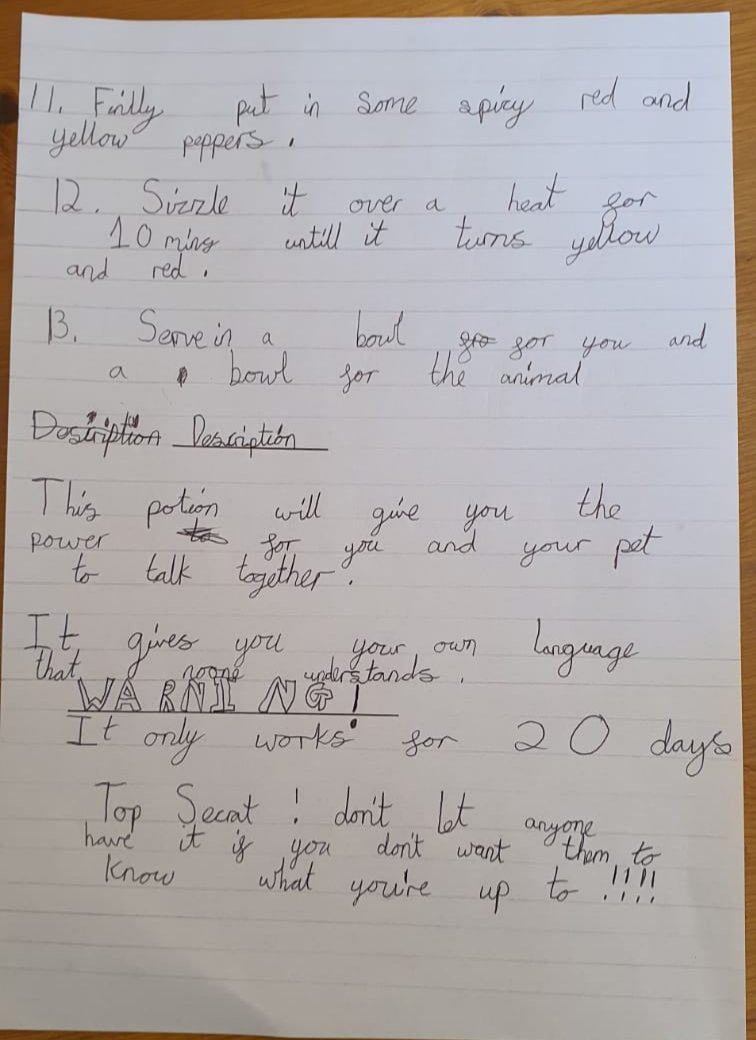 11. Finlly put in some spicy red and
yellow peppers.
12. Sizzle it over a heat for
10 mins untill it turns yellow
and red.
13. Serve in a bowl fro for you and
a bowl for the animal
Description Description
This potion will give you the
power for you and your pet
to talk together.
It gives you your own language
that noone understands.
WARNING!
It only works for 20 days
Top Secrat! don't let anyone
have it if you don't want them to
know what you're up to !!!!